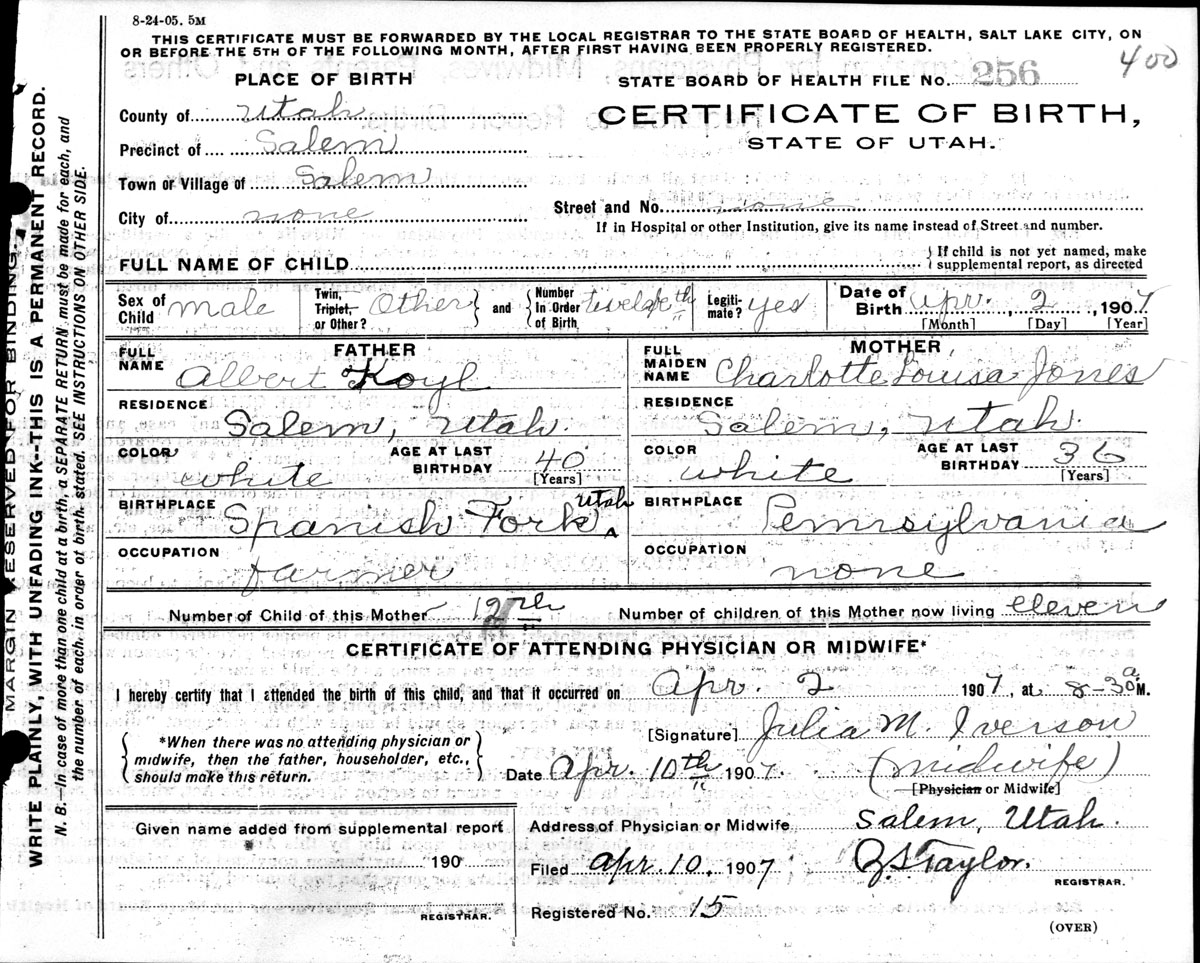 8-24-05. 5M
THIS CERTIFICATE MUST BE FORWARDED BY THE LOCAL REGISTRAR TO THE STATE BOARD OF HEALTH, SALT LAKE CITY, ON
OR BEFORE THE 5TH OF THE FOLLOWING MONTH, AFTER FIRST HAVING BEEN PROPERLY REGISTERED.
400
PLACE OF BIRTH
STATE BOARD OF HEALTH FILE No. 256
County of Utah
CERTIFICATE OF BIRTH,
STATE OF UTAH.
Precinct of Salem
Town or Village of Salem
City of none
Street and No. none
If in Hospital or other Institution, give its name instead of Street and number.
FULL NAME OF CHILD
If child is not yet named, make
supplemental report, as directed
Sex of Child male
Twin, Triplet, or Other? Other and Number In Order of Birth twelpth
Legitimate? yes
Date of Birth Apr. 2, 1907
[Month] [Day] [Year]
FATHER
FULL NAME Albert Koyl
RESIDENCE Salem, Utah.
COLOR white
AGE AT LAST BIRTHDAY 40 [Years]
BIRTHPLACE Spanish Fork Utah
OCCUPATION farmer
MOTHER
FULL MAIDEN NAME Charlotte Louisa Jones
RESIDENCE Salem, Utah.
COLOR white
AGE AT LAST BIRTHDAY 36 [Years]
BIRTHPLACE Pennsylvania
OCCUPATION none
Number of Child of this Mother 12th
Number of children of this Mother now living eleven
CERTIFICATE OF ATTENDING PHYSICIAN OR MIDWIFE*
I hereby certify that I attended the birth of this child, and that it occurred on Apr. 2 1907, at 8-30 a M.
*When there was no attending physician or
midwife, then the father, householder, etc.,
should make this return.
[Signature] Julia M. Iverson
Date Apr. 10th 1907. (midwife)
[Physician or Midwife]
Given name added from supplemental report
190
REGISTRAR.
Address of Physician or Midwife Salem, Utah.
Filed Apr. 10, 1907 Taylor.
REGISTRAR.
Registered No. 15
(OVER)
MARGIN RESERVED FOR BINDING.
WRITE PLAINLY, WITH UNFADING INK--THIS IS A PERMANENT RECORD.
N. B.—In case of more than one child at a birth, a SEPARATE RETURN must be made for each, and
the number of each, in order of birth, stated. SEE INSTRUCTIONS ON OTHER SIDE.